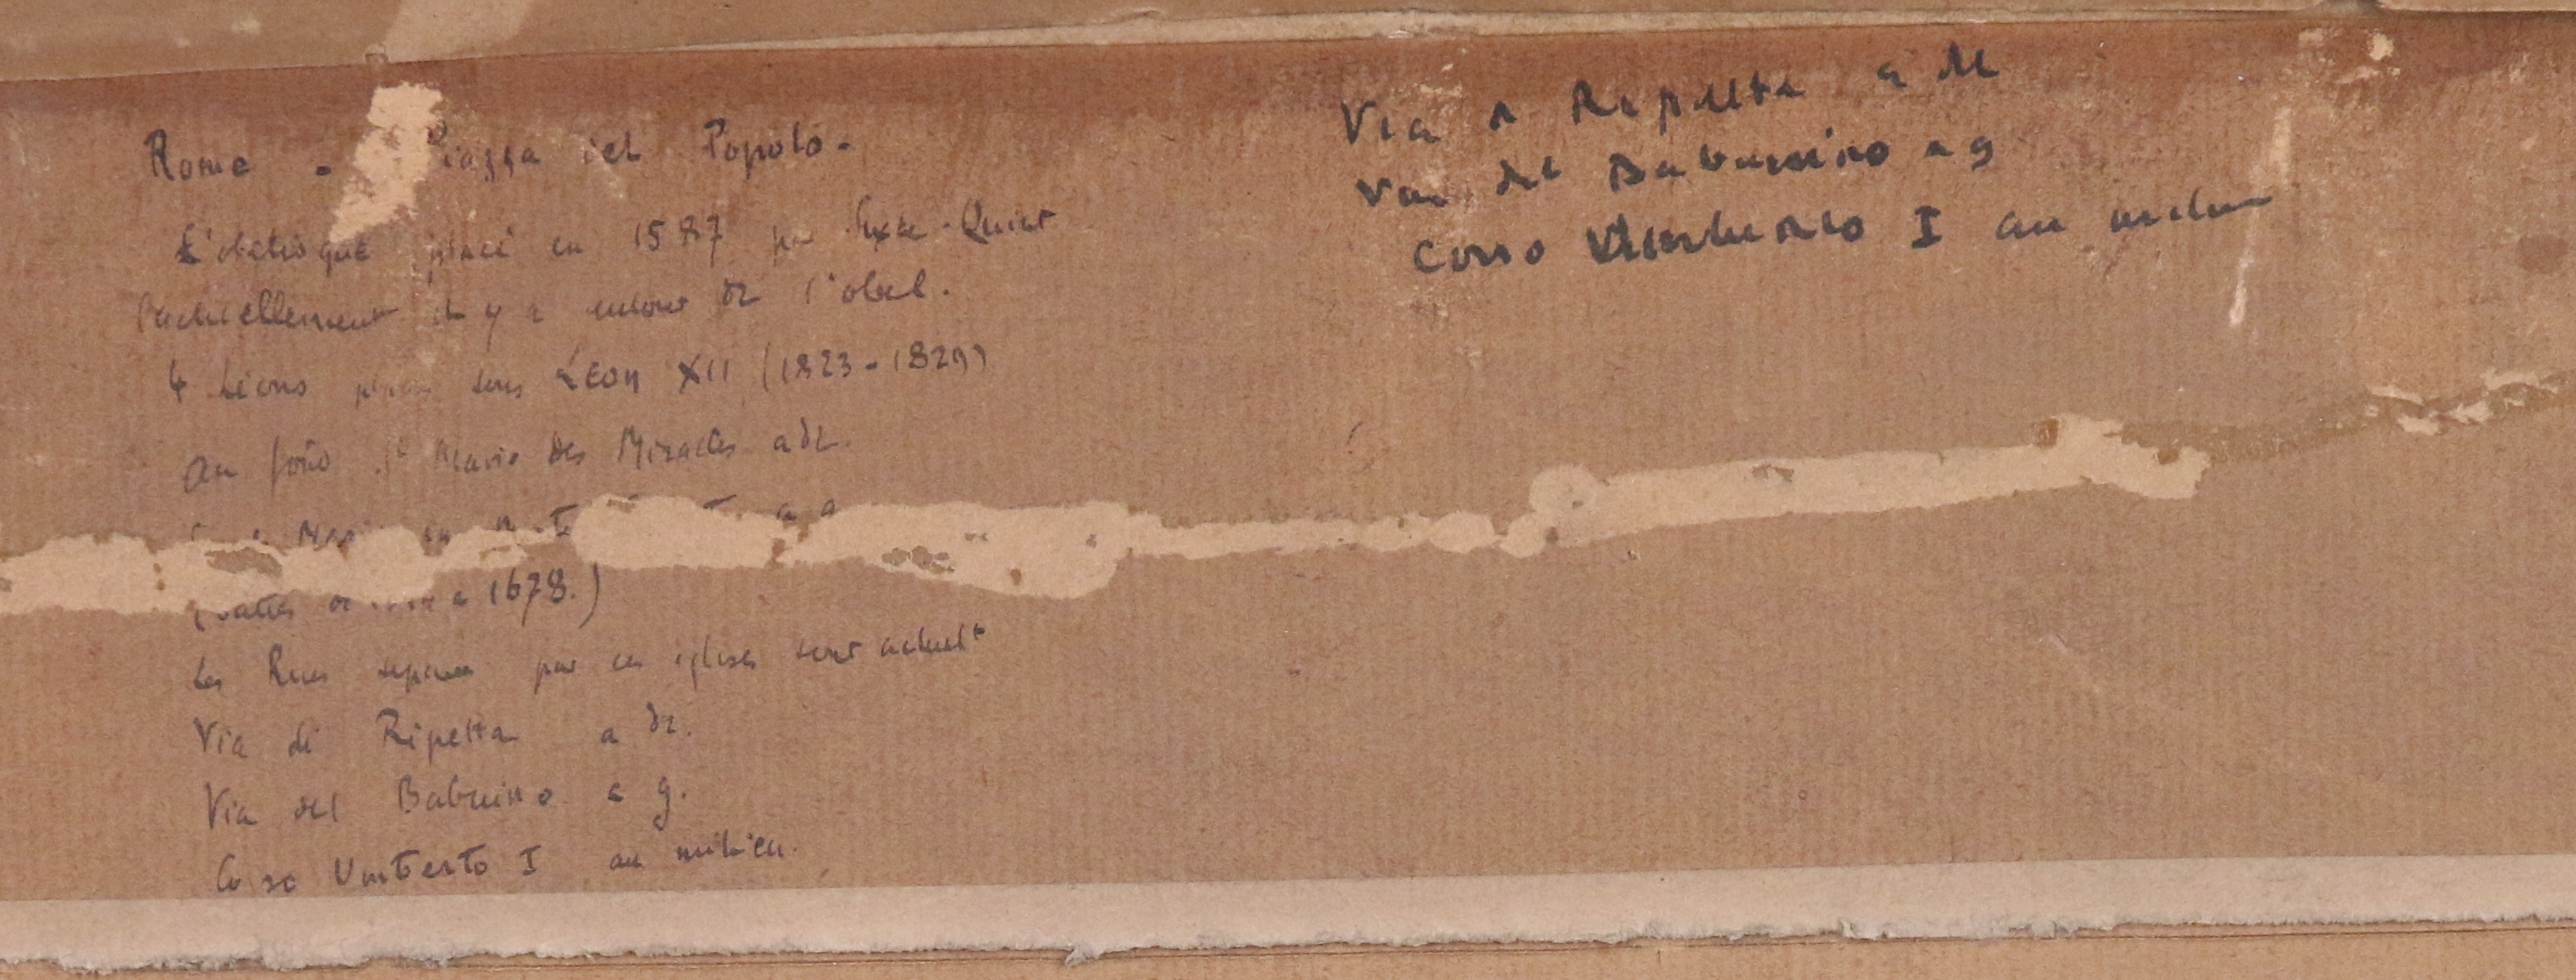 Rome - Piazza del Popolo.
L'obélisque placé en 1587 par Sixte-Quint
Actuellement il y a autour de l'obel.
4 Lions placés sous LEON XII (1823-1829)
Au fond Ste Marie des Miracles a dr.
a g
(baties de a 1678.)
Les Rues separées par ces églises sont actuelt
Via di Ripetta a dr.
Via del Babuino a g.
Corso Umberto I au milieu.
Via Ripetta a dr
Via del Babuino a g
Corso Umberto I au milieu